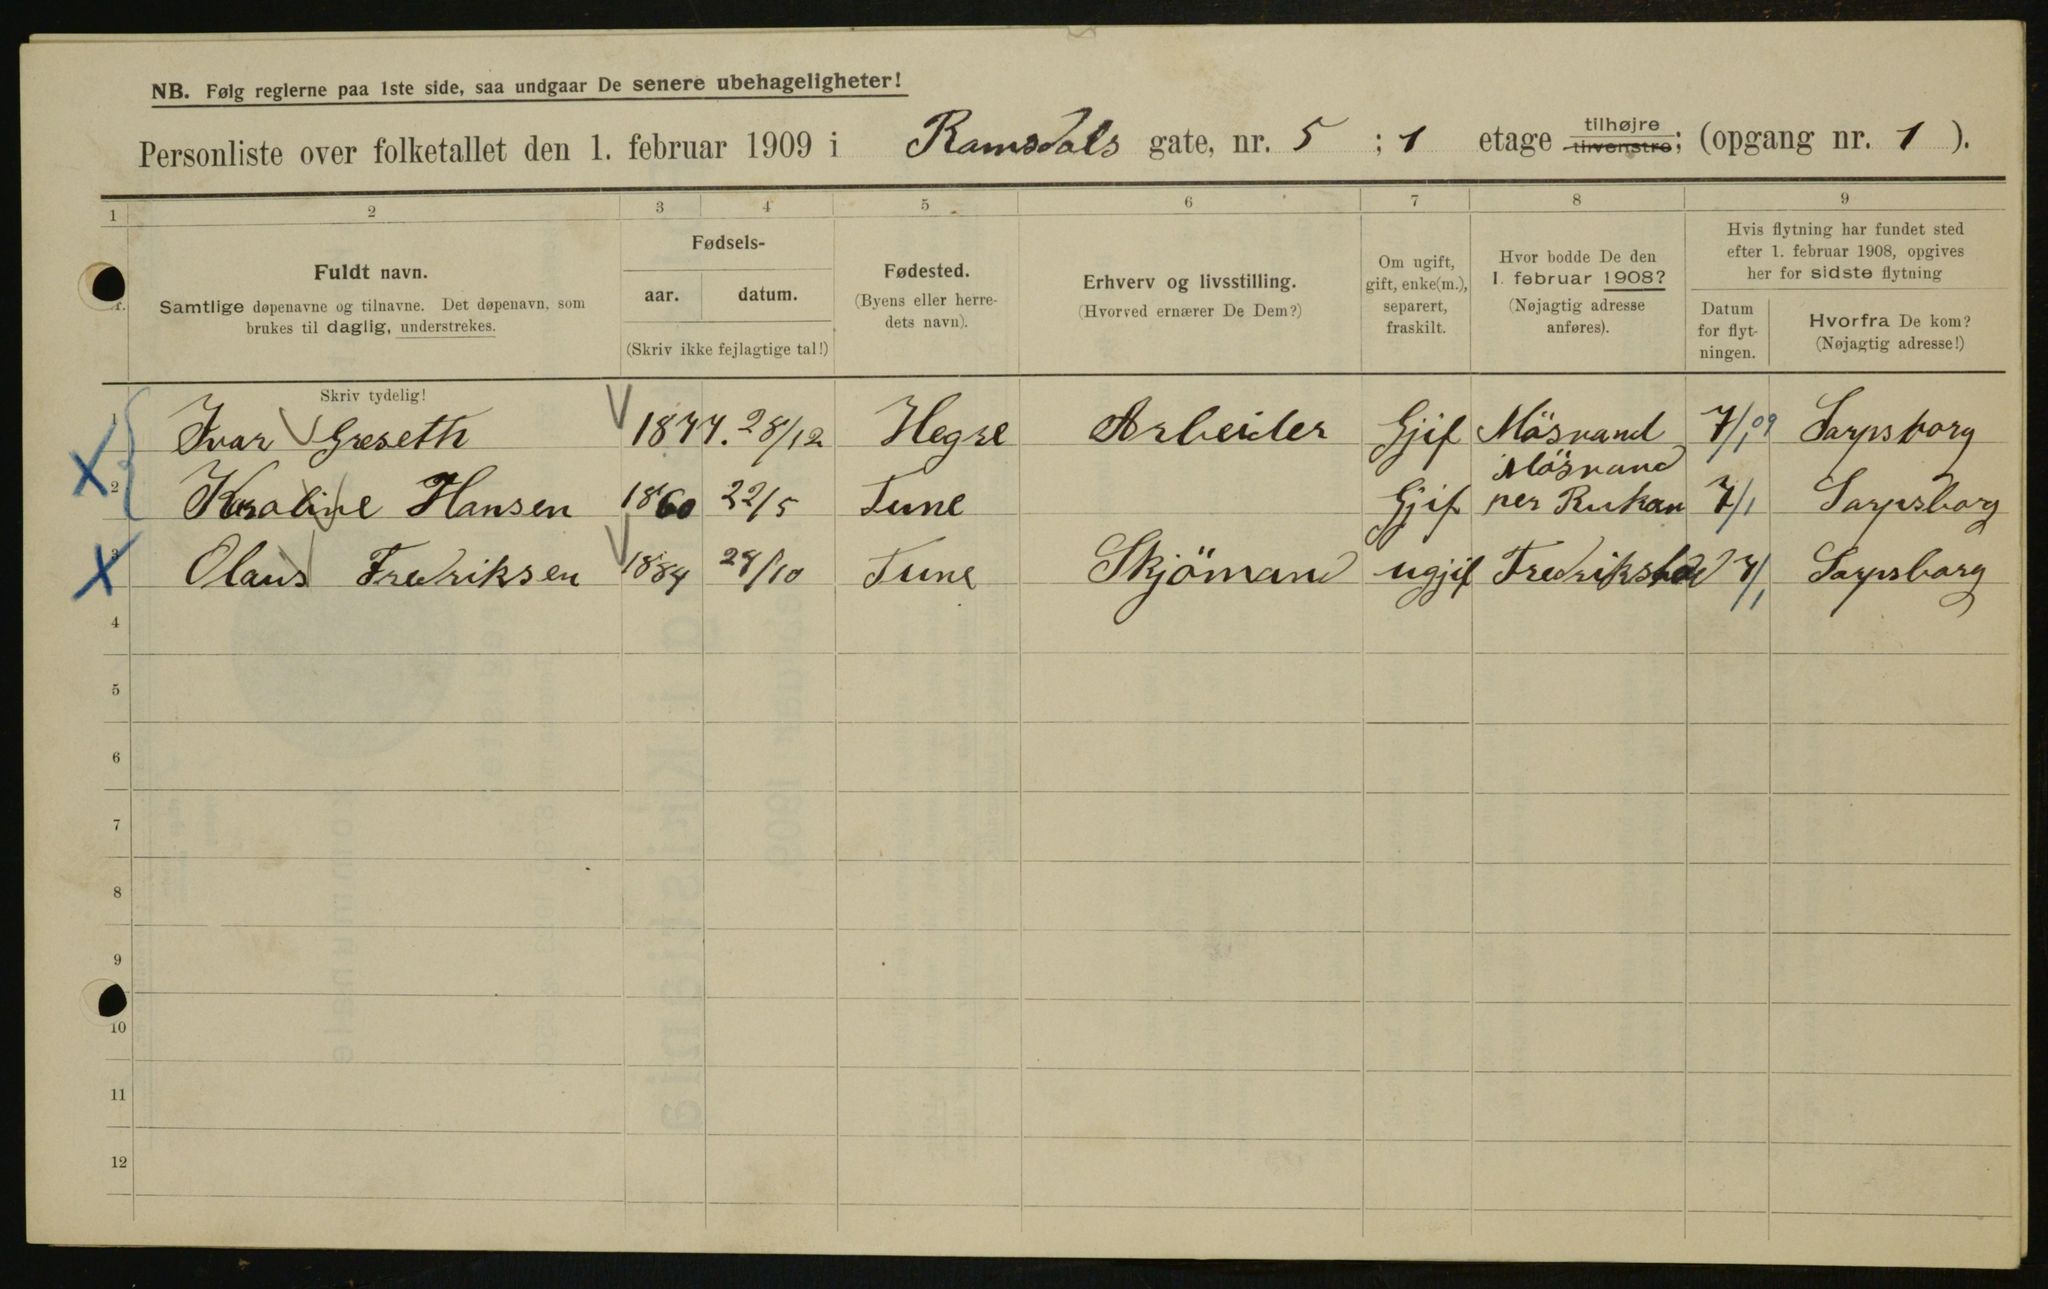 NB. Følg reglerne paa 1ste side, saa undgaar De senere ubehageligheter!
Personliste over folketallet den 1. februar 1909 i Ramsdals gate, nr. 5 ; 1 etage tilhøjre tilvenstre; (opgang nr. 1 ).
1 2 3 4 5 6 7 8 9
Fuldt navn.
Samtlige døpenavne og tilnavne. Det døpenavn, som
brukes til daglig, understrekes.
Fødsels-
aar. datum.
(Skriv ikke fejlagtige tal!)
Fødested.
(Byens eller herre-
dets navn).
Erhverv og livsstilling.
(Hvorved ernærer De Dem?)
Om ugift,
gift, enke(m.),
separert,
fraskilt.
Hvor bodde De den
1. februar 1908?
(Nøjagtig adresse
anføres).
Hvis flytning har fundet sted
efter 1. februar 1908, opgives
her for sidste flytning
Datum
for flyt-
ningen.
Hvorfra De kom?
(Nøjagtig adresse!)
Skriv tydelig!
1 Ivar Græseth 1877. 28/12 Hegre Arbeider Gjif Mösvand 7/1 09 Sarpsborg
2 Karoline Hansen 1860 22/5 Tune Gjif Mösvand per Rukan 7/1 Sarpsborg
3 Olaus Fredriksen 1884 29/10 Tune Skjömand ugjif Fredrikstad 7/1 Sarpsborg
4
5
6
7
8
9
10
11
12